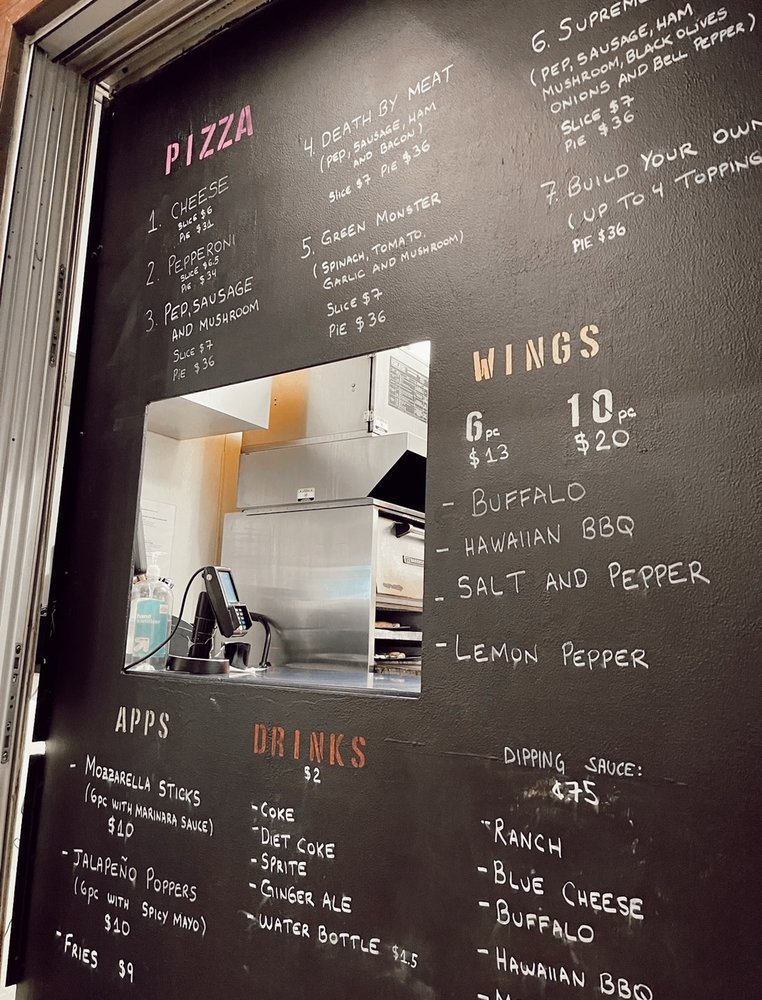 PIZZA
1. CHEESE
SLICE $6
PIE $31
2. PEPPERONI
SLICE $6.5
PIE $34
3. PEP, SAUSAGE
AND MUSHROOM
SLICE $7
PIE $36
4. DEATH BY MEAT
(PEP, SAUSAGE, HAM
AND BACON)
SLICE $7 PIE $36
5. GREEN MONSTER
(SPINACH, TOMATO,
GARLIC AND MUSHROOM)
SLICE $7
PIE $36
6. SUPREM
(PEP, SAUSAGE, HAM
MUSHROOM, BLACK OLIVES
ONIONS AND BELL PEPPER)
SLICE $7
PIE $36
7. BUILD YOUR OWN
(UP TO 4 TOPPING
PIE $36
WINGS
6pc 10pc
$13 $20
- BUFFALO
- HAWAIIAN BBQ
- SALT AND PEPPER
- LEMON PEPPER
APPS
- MOZZARELLA STICKS
(6PC WITH MARINARA SAUCE)
$10
- JALAPEÑO POPPERS
(6PC WITH SPICY MAYO)
$10
- FRIES $9
DRINKS
$2
- COKE
- DIET COKE
- SPRITE
- GINGER ALE
- WATER BOTTLE $1.5
DIPPING SAUCE:
¢75
- RANCH
- BLUE CHEESE
- BUFFALO
- HAWAIIAN BBQ
hand sanitizer